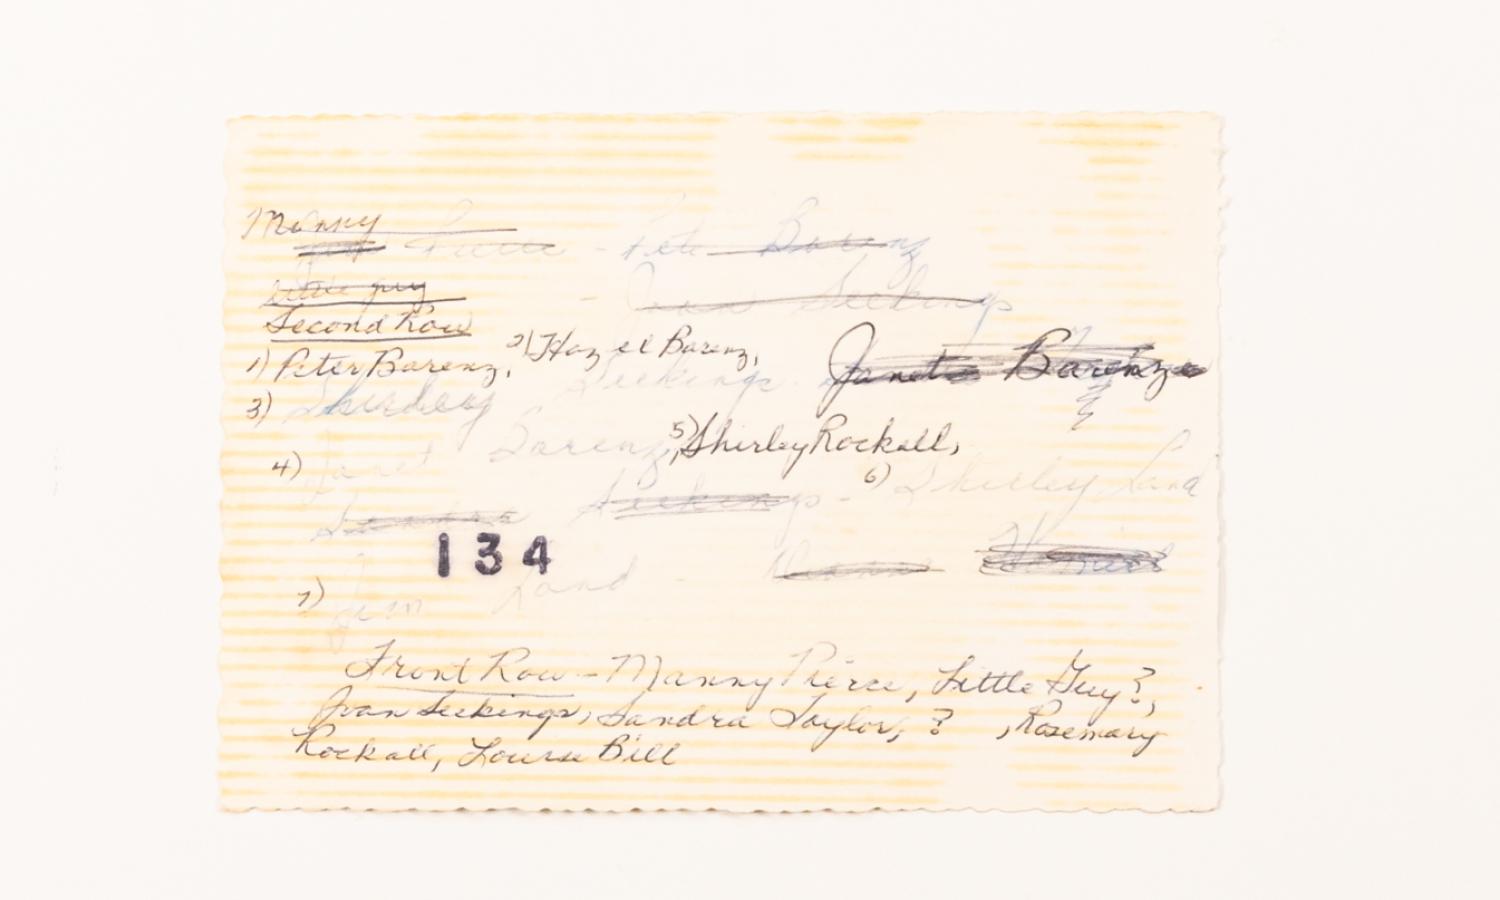 Manny
Pete Barenz
little guy - Jean Seekings
Second Row
1) Peter Barenz, 2) Hazel Barenz, Janet Barenz
3) Shirley Seekings
4) Janet Barenz, 5) Shirley Rockall,
Sandra Seekings - 6) Shirley Land
134
7) Jim Land -
Front Row - Manny Pierce, Little Guy?,
Joan Seekings, Sandra Taylor, ? , Rosemary
Rockall, Louise Bill